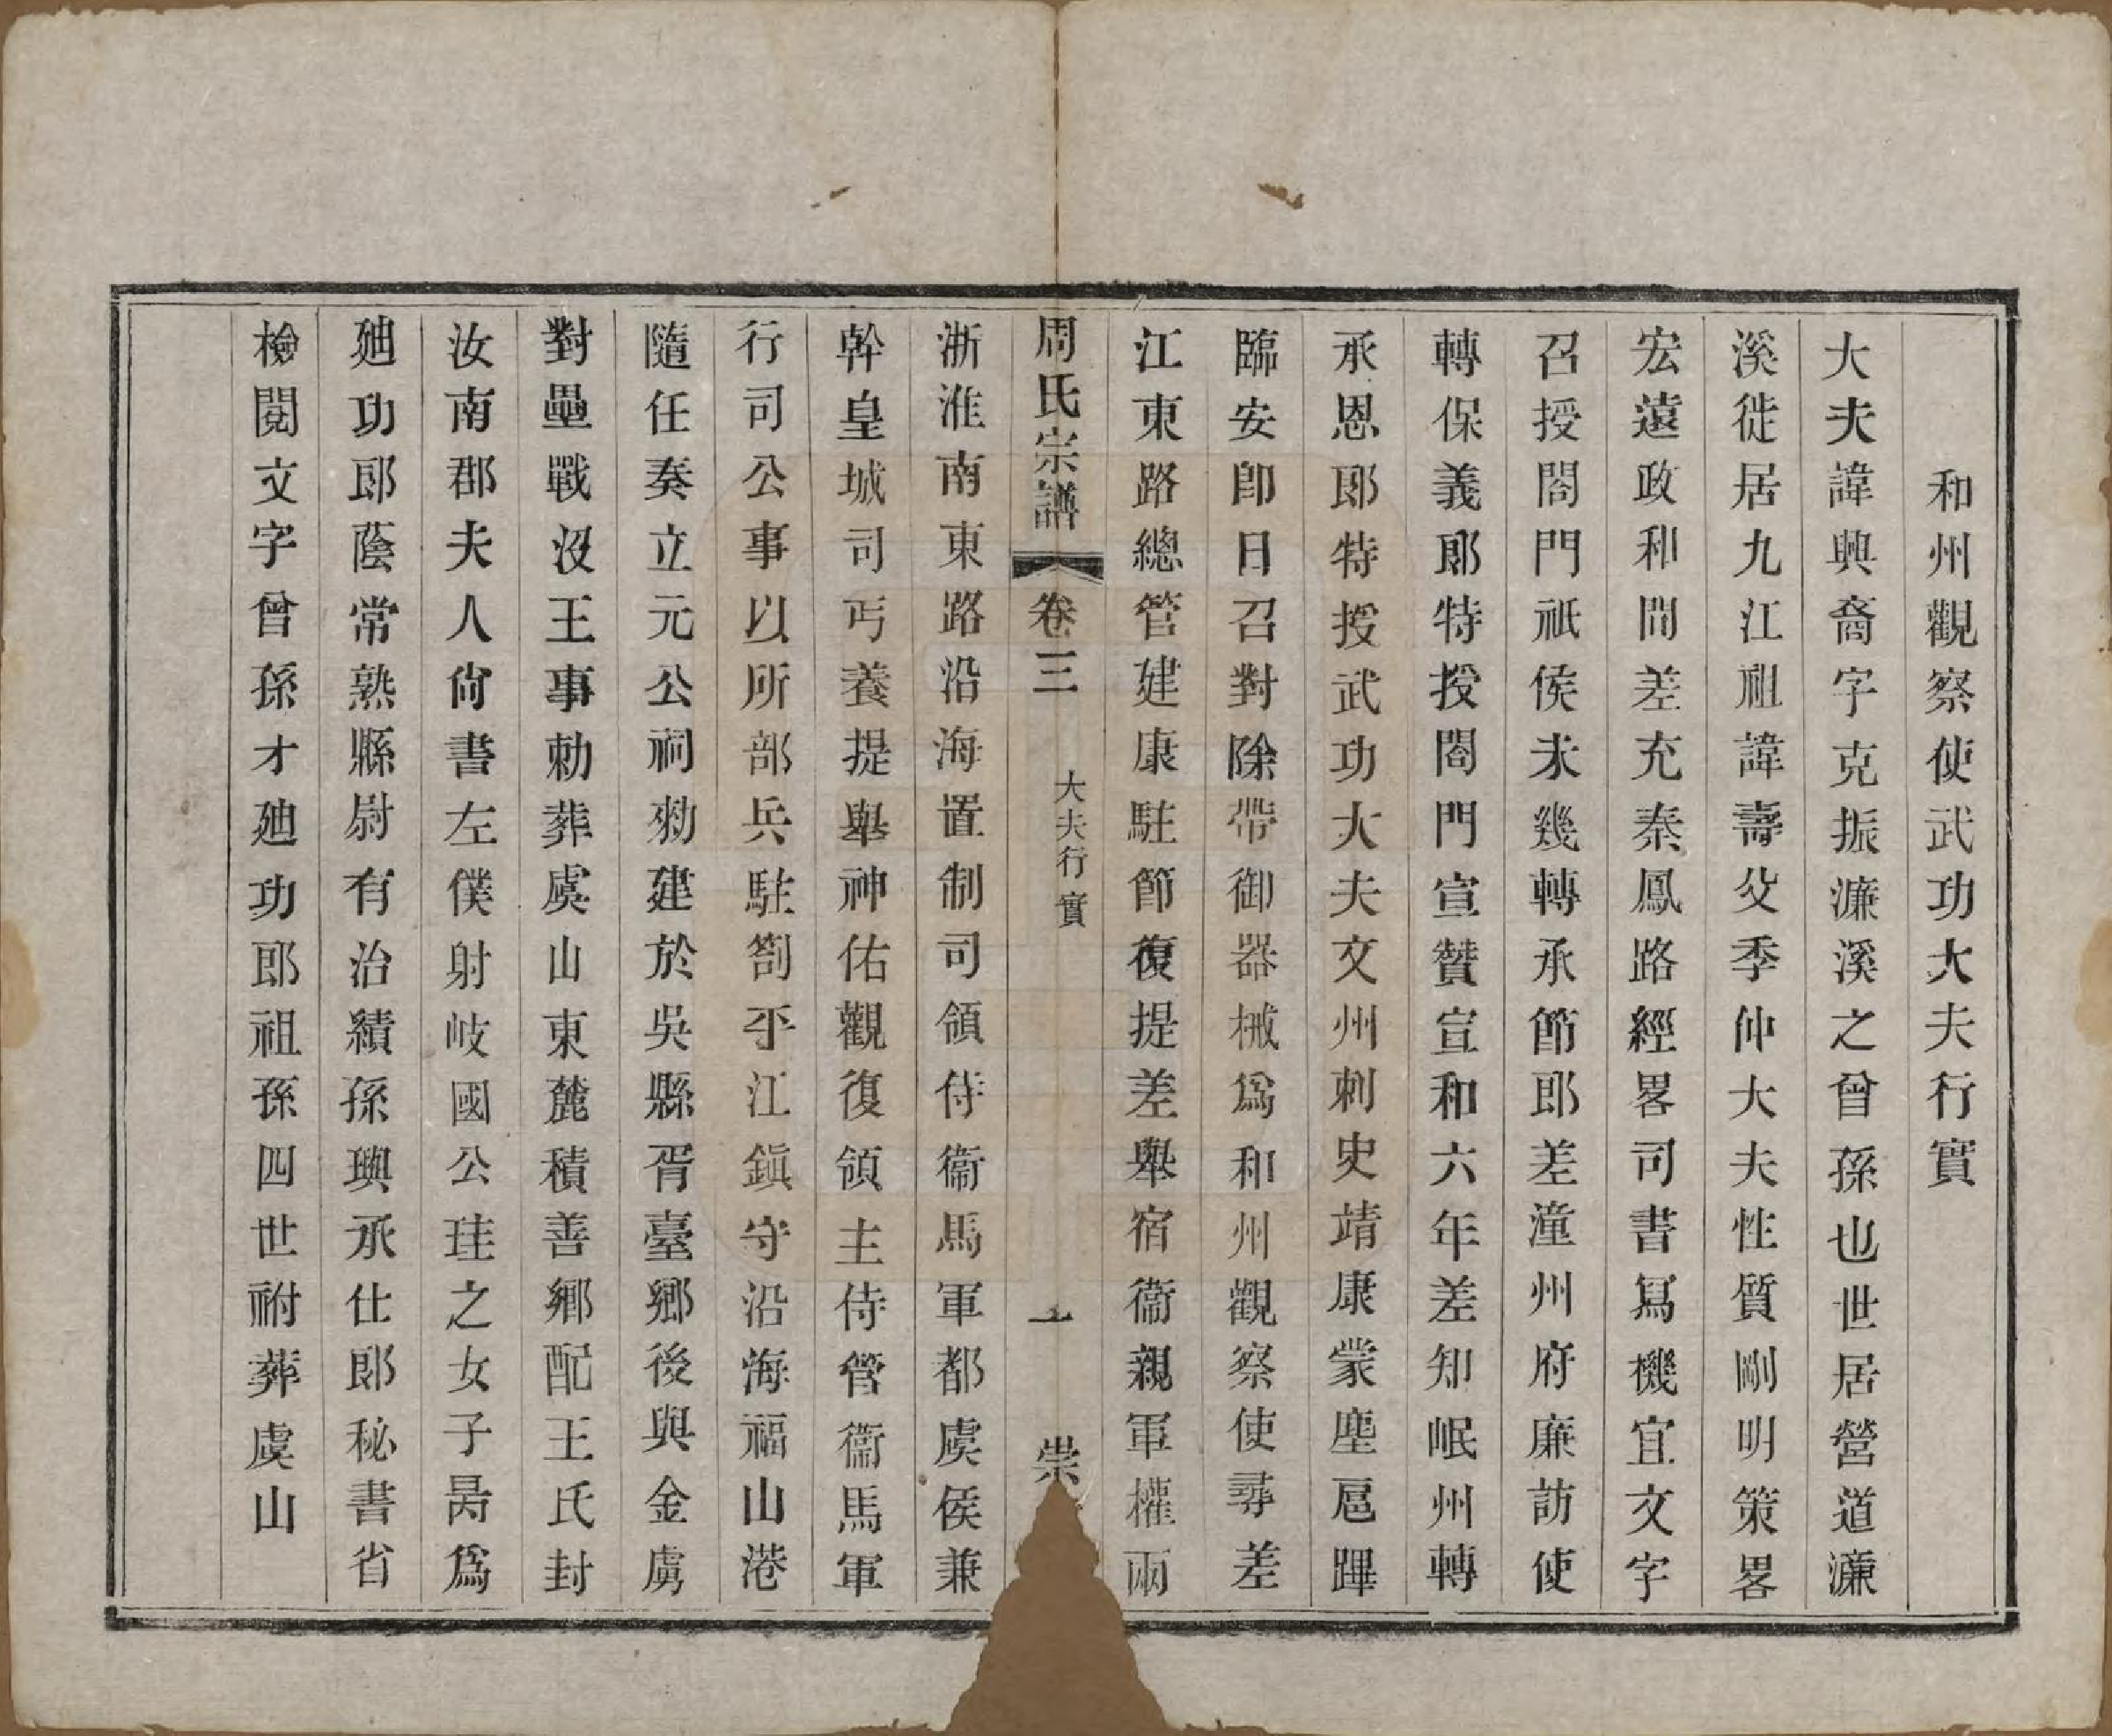 和州觀察使武功大夫行實
大夫諱興裔字克振濂溪之曾孫也世居營道濂
溪徙居九江祖諱壽父季仲大夫性質剛明策畧
宏遠政和間差充秦鳳路經畧司書寫機宜文字
召授閤門祗侯未幾轉承節郎差潼州府廉訪使
轉保義郎特授閤門宣贊宣和六年差知岷州轉
承恩郎特授武功大夫文州刺史靖康蒙塵扈蹕
臨安卽日召對除帶御器械爲和州觀察使尋差
江東路總管建康駐節復提差舉宿衞親軍權兩
周氏宗譜
卷三
大夫行實
一
崇
浙淮南東路沿海置制司領侍衞馬軍都虞侯兼
幹皇城司丐養提舉神佑觀復領主侍管衞馬軍
行司公事以所部兵駐劄平江鎭守沿海福山港
隨任奏立元公祠勑建於吳縣胥臺鄉後與金虜
對壘戰沒王事勅葬虞山東麓積善鄉配王氏封
汝南郡夫人尙書左僕射岐國公珪之女子昺爲
廸功郎蔭常熟縣尉有治績孫璵承仕郎秘書省
檢閱文字曾孫才廸功郎祖孫四世祔葬虞山